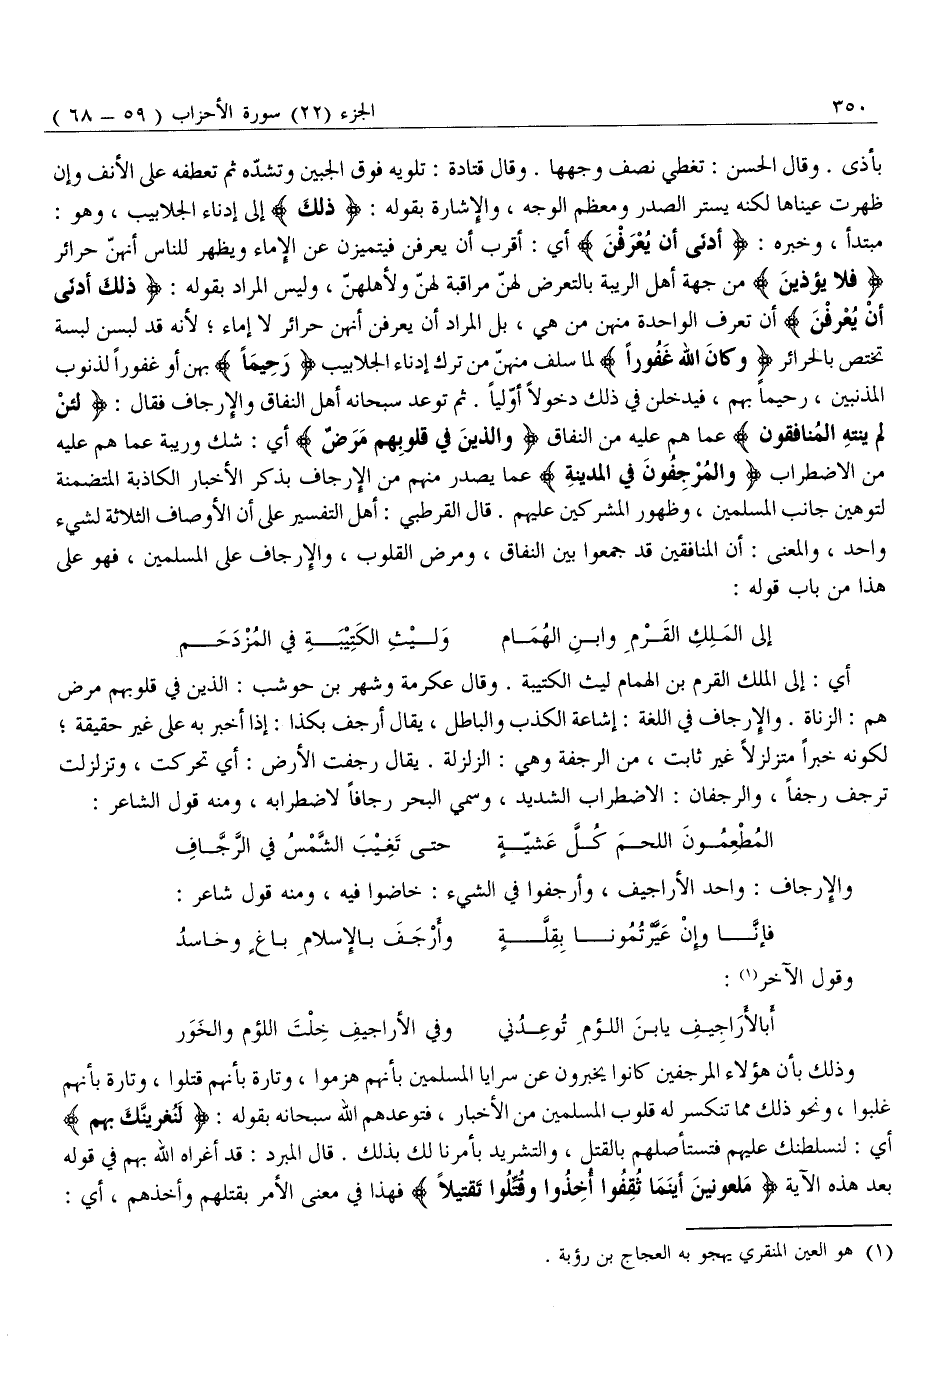 ٣٥٠ الجزء (٢٢) سورة الأحزاب ( ٥٩ – ٦٨ )
بأذى . وقال الحسن : تغطي نصف وجهها . وقال قتادة : تلويه فوق الجبين وتشدّه ثم تعطفه على الأنف وإن
ظهرت عيناها لكنه يستر الصدر ومعظم الوجه ، والإشارة بقوله : ﴿ ذلكَ ﴾ إلى إدناء الجلابيب ، وهو :
مبتدأ ، وخبره : ﴿ أدنَى أن يُعْرَفْنَ ﴾ أي : أقرب أن يعرفن فيتميزن عن الإماء ويظهر للناس أنهنّ حرائر
﴿ فلا يؤذينَ ﴾ من جهة أهل الريبة بالتعرض لهنّ مراقبة لهنّ ولأهلهنّ ، وليس المراد بقوله : ﴿ ذلك أدنَى
أنْ يُعْرفْنَ ﴾ أن تعرف الواحدة منهن من هي ، بل المراد أن يعرفن أنهن حرائر لا إماء ؛ لأنه قد لبسن لبسة
تختص بالحرائر ﴿ وكانَ الله غَفُوراً ﴾ لما سلف منهنّ من ترك إدناء الجلابيب ﴿ رَحِيمَاً ﴾ بهن أو غفوراً لذنوب
المذنبين ، رحيماً بهم ، فيدخلن في ذلك دخولاً أوّلياً . ثم توعد سبحانه أهل النفاق والإرجاف فقال : ﴿ لئنْ
لم ينتهِ المُنافقون ﴾ عما هم عليه من النفاق ﴿ والذينَ في قلوبهم مَرَضٌ ﴾ أي : شك وريبة عما هم عليه
من الاضطراب ﴿ والمُرْجِفُونَ في المدينةِ ﴾ عما يصدر منهم من الإرجاف بذكر الأخبار الكاذبة المتضمنة
لتوهين جانب المسلمين ، وظهور المشركين عليهم . قال القرطبي : أهل التفسير على أن الأوصاف الثلاثة لشيء
واحد ، والمعنى : أن المنافقين قد جمعوا بين النفاق ، ومرض القلوب ، والإرجاف على المسلمين ، فهو على
هذا من باب قوله :
إلى المَلِكِ القَرْمِ وابنِ الهُمَام وَلَيْثِ الكَتِيْبَةِ في المُزْدَحَم
أي : إلى الملك القرم بن الهمام ليث الكتيبة . وقال عكرمة وشهر بن حوشب : الذين في قلوبهم مرض
هم : الزناة . والإرجاف في اللغة : إشاعة الكذب والباطل ، يقال أرجف بكذا : إذا أخبر به على غير حقيقة ؛
لكونه خبراً متزلزلاً غير ثابت ، من الرجفة وهي : الزلزلة . يقال رجفت الأرض : أي تحركت ، وتزلزلت
ترجف رجفاً ، والرجفان : الاضطراب الشديد ، وسمي البحر رجافاً لاضطرابه ، ومنه قول الشاعر :
المُطْعِمُونَ اللحمَ كُلَّ عَشيّةٍ حتى تَغِيْبَ الشَّمْسُ في الرَّجَّافِ
والإرجاف : واحد الأراجيف ، وأرجفوا في الشيء : خاضوا فيه ، ومنه قول شاعر :
فإنَّا وإنْ عَيَّرْتُمُونا بِقِلَّةٍ وأَرْجَفَ بالإسلامِ باغٍ وحَاسدُ
وقول الآخر(١) :
أبالأَرَاجيفِ يابنَ اللؤمِ تُوعِدُني وفي الأراجيفِ خِلْتَ اللؤم والخَوَر
وذلك بأن هؤلاء المرجفين كانوا يخبرون عن سرايا المسلمين بأنهم هزموا ، وتارة بأنهم قتلوا ، وتارة بأنهم
غلبوا ، ونحو ذلك مما تنكسر له قلوب المسلمين من الأخبار ، فتوعدهم الله سبحانه بقوله : ﴿ لَنُغرينَّكَ بهم ﴾
أي : لنسلطنك عليهم فتستأصلهم بالقتل ، والتشريد بأمرنا لك بذلك . قال المبرد : قد أغراه الله بهم في قوله
بعد هذه الآية ﴿ مَلعونينَ أينَمَا ثُقِفُوا أُخِذُوا وقُتِّلُوا تَقتيلاً ﴾ فهذا في معنى الأمر بقتلهم وأخذهم ، أي :
(١) هو العين المنقري يهجو به العجاج بن رؤبة .